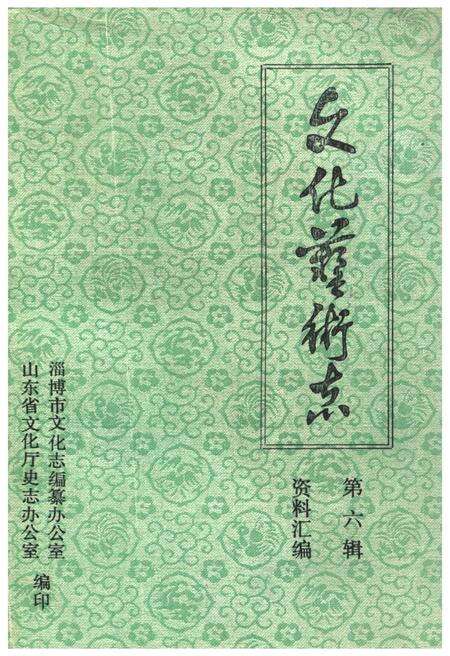 文化藝術志
第六辑
资料汇编
淄博市文化志编纂办公室
山东省文化厅史志办公室
编印